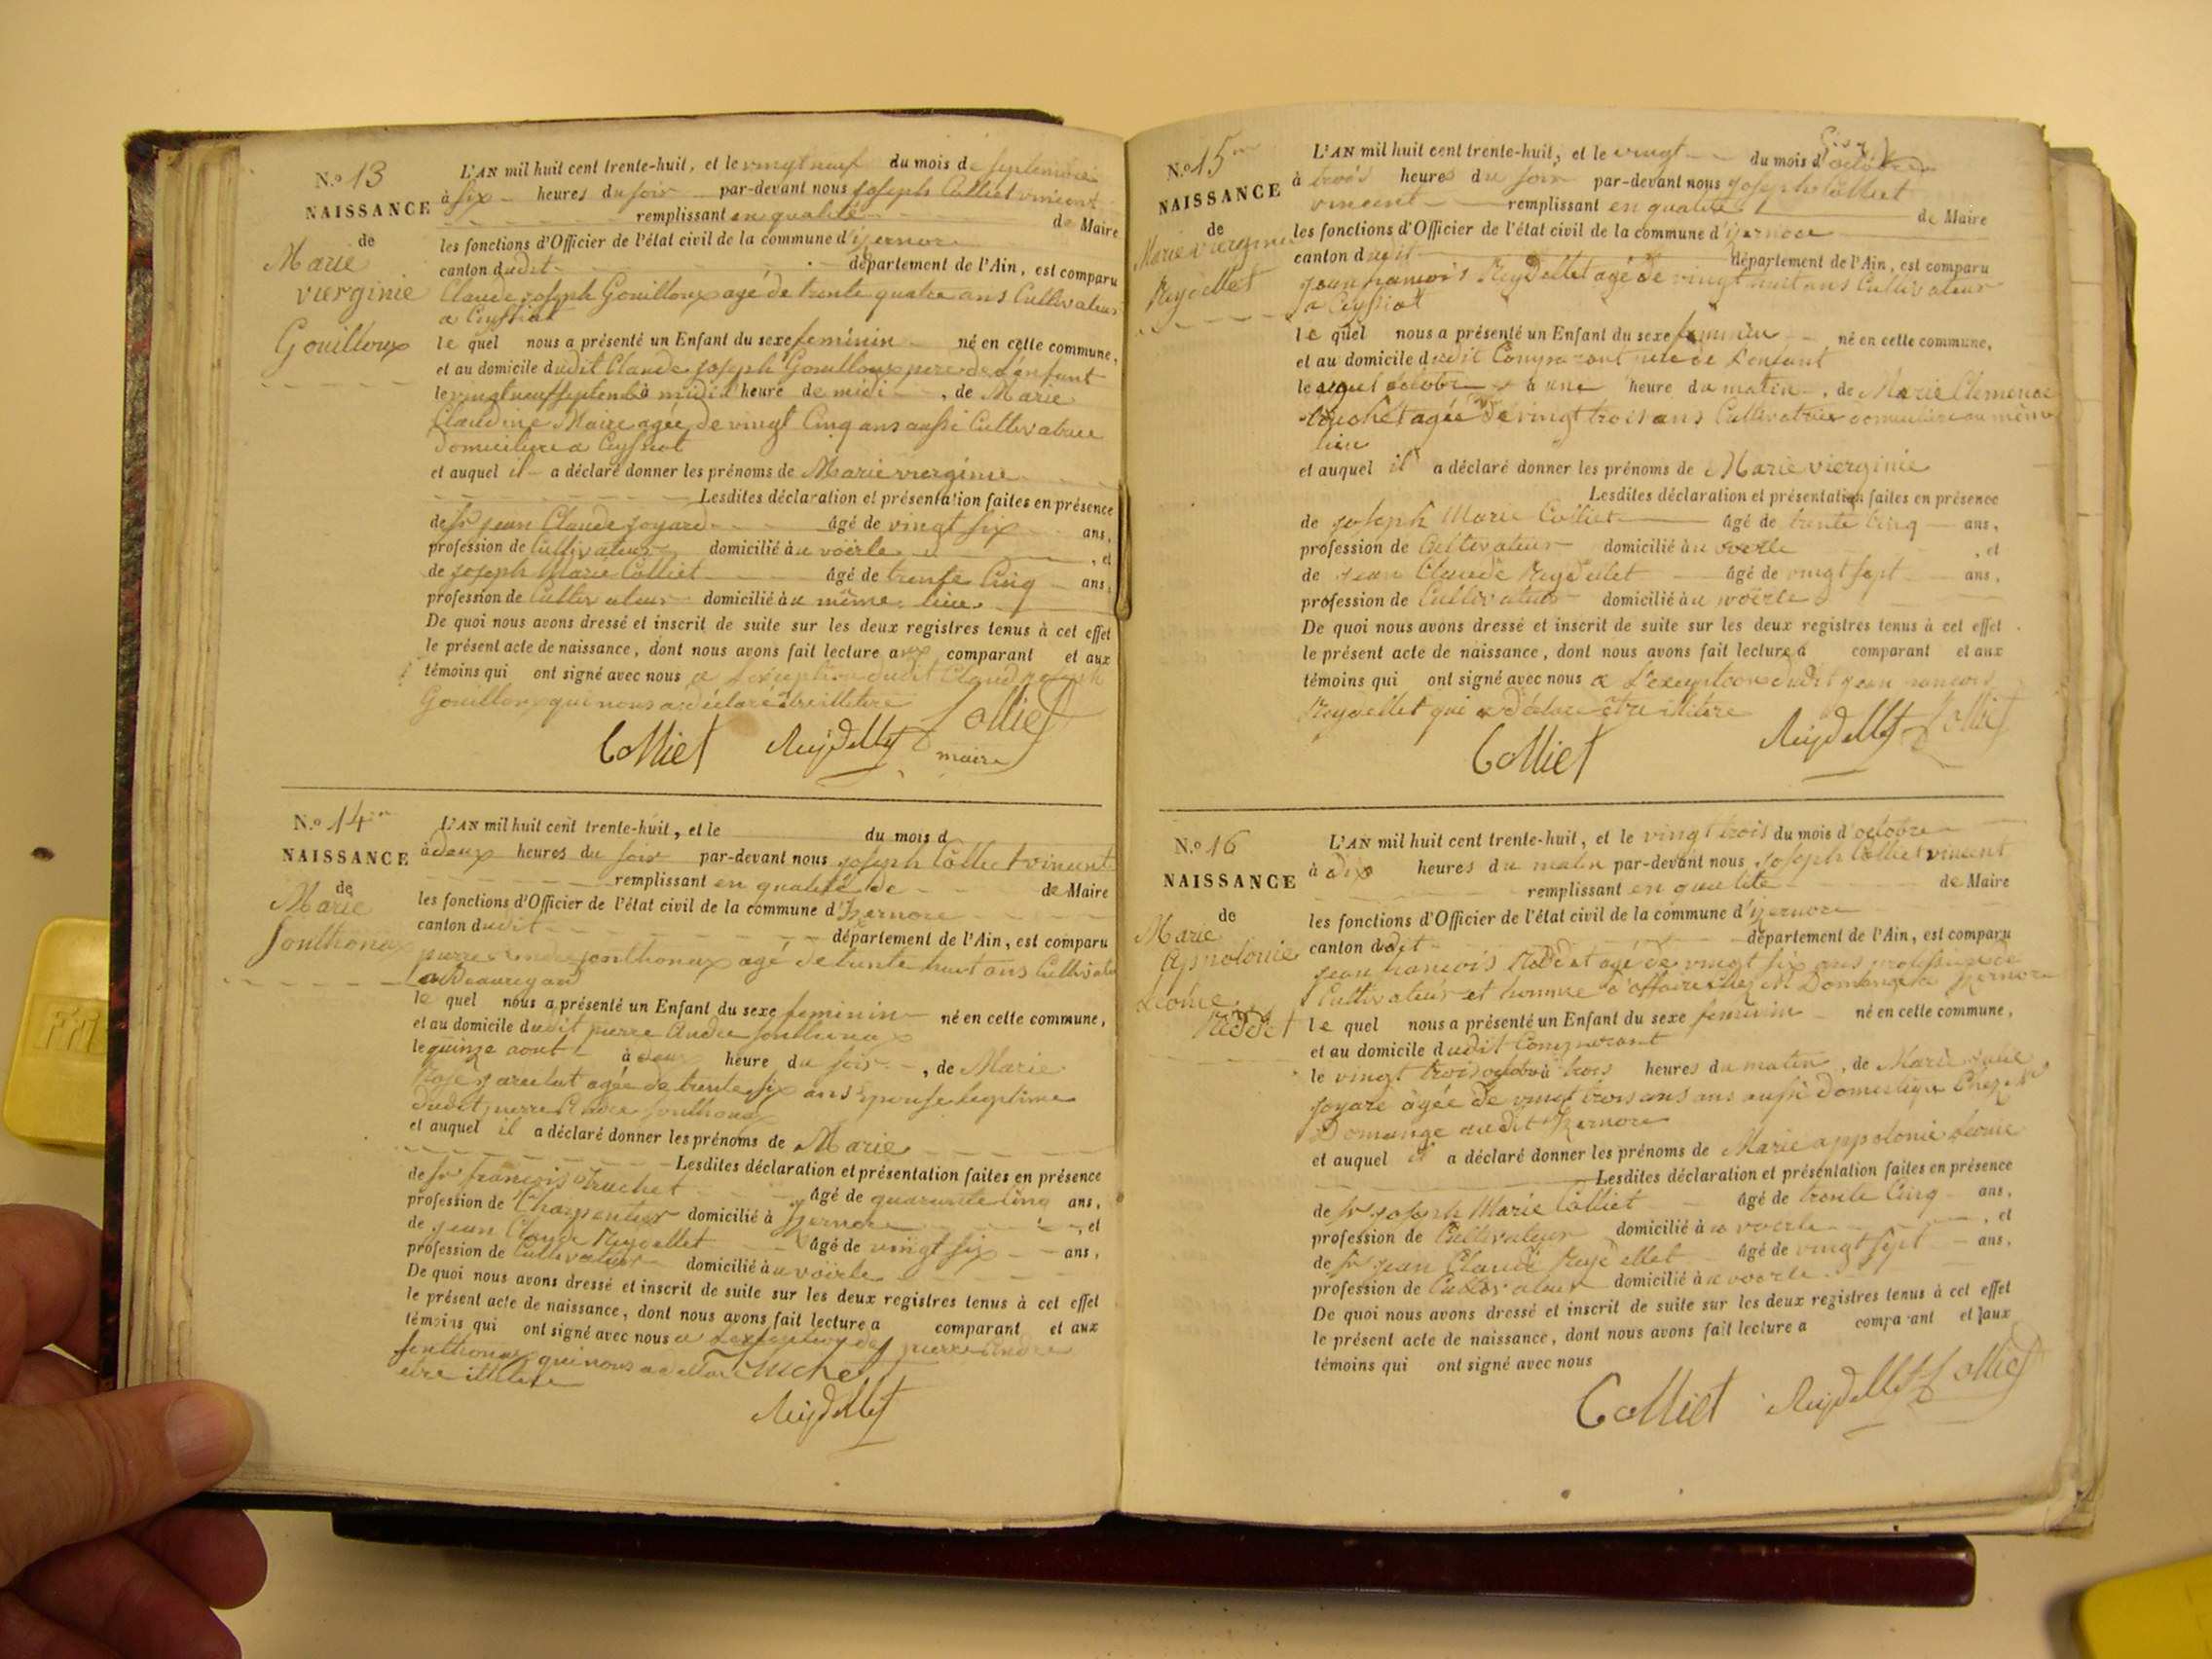 N.º 13
NAISSANCE
de
Marie
vierginie
Gouilloux
L'AN mil huit cent trente-huit, et le vingt neuf du mois de septembre
à six heures du soir par-devant nous joseph Colliet vincent
remplissant en qualité de Maire
les fonctions d'Officier de l'état civil de la commune d'izernore
canton dudit département de l'Ain, est comparu
Claude joseph Gouilloux agé de trente quatre ans Cultivateur
a Ceyssiat
le quel nous a présenté un Enfant du sexe feminin né en cette commune,
et au domicile dudit Claude joseph Gouilloux pere de L'enfant
le vingt neuf septemb à midi l'heure de midi, de Marie
Claudine Maire agée de vingt Cinq ans aussi Cultivatrice
domiciliée a Ceyssiat
et auquel il a déclaré donner les prénoms de Marie vierginie
Lesdites déclaration et présentation faites en présence
de sr jean Claude joyard âgé de vingt six ans,
profession de Cultivateur domicilié à u voërle, et
de joseph Marie Colliet âgé de trente Cinq ans,
profession de Cultivateur domicilié à u même lieu
De quoi nous avons dressé et inscrit de suite sur les deux registres tenus à cet effet
le présent acte de naissance, dont nous avons fait lecture aux comparant et aux
témoins qui ont signé avec nous a L'exception dudit Claude joseph
Gouilloux qui nous a déclaré être illitere
Colliet Reydellet Colliet
maire
N.º 14
NAISSANCE
de
Marie
Jonthonax
L'AN mil huit cent trente-huit, et le du mois d
à deux heures du soir par-devant nous joseph Colliet vincent
remplissant en qualité de de Maire
les fonctions d'Officier de l'état civil de la commune d'Izernore
canton dudit département de l'Ain, est comparu
pierre andre jonthonax agé de trente huit ans Cultivate
a Beauregard
le quel nous a présenté un Enfant du sexe feminin né en cette commune,
et au domicile dudit pierre Andre Jonthonax
le quinze aout à deux heure du soir, de Marie
Rose agée de trente six ans Epouse legitime
dudit pierre Andre Jonthonax
et auquel il a déclaré donner les prénoms de Marie
Lesdites déclaration et présentation faites en présence
de sr francois Truchet âgé de quarante Cinq ans,
profession de Charpentier domicilié à Izernore, et
de jean Claude Reydellet âgé de vingt six ans,
profession de Cultivateur domicilié à u voërle
De quoi nous avons dressé et inscrit de suite sur les deux registres tenus à cet effet
le présent acte de naissance, dont nous avons fait lecture a comparant et aux
témoins qui ont signé avec nous a L'exception de pierre Andre
Jonthonax qui nous a déclaré Truchet
etre illitere
Reydellet
N.º 15
NAISSANCE
de
Marie vierginie
Reydellet
L'AN mil huit cent trente-huit, et le vingt du mois d'octobre
à trois heures du soir par-devant nous joseph Colliet
vincent remplissant en qualité de Maire
les fonctions d'Officier de l'état civil de la commune d'izernore
canton dudit département de l'Ain, est comparu
jean francois Reydellet agé de vingt huit ans Cultivateur
a Ceyssiat
le quel nous a présenté un Enfant du sexe feminin né en cette commune,
et au domicile dudit Comparant pere de L'enfant
le octobre à une heure du matin, de Marie Clemence
truchet agée de vingt trois ans Cultivatrice domiciliée au même
lieu
et auquel il a déclaré donner les prénoms de Marie vierginie
Lesdites déclaration et présentation faites en présence
de joseph Marie Colliet âgé de trente Cinq ans,
profession de Cultivateur domicilié à u voërle, et
de jean Claude Reydellet âgé de vingt sept ans,
profession de Cultivateur domicilié à u voërle
De quoi nous avons dressé et inscrit de suite sur les deux registres tenus à cet effet
le présent acte de naissance, dont nous avons fait lecture a comparant et aux
témoins qui ont signé avec nous a L'exception dudit jean francois
Reydellet qui a déclaré être illitere
Colliet Reydellet Colliet
N.º 16
NAISSANCE
de
Marie
Apnolonie
Léonie
Roddet
L'AN mil huit cent trente-huit, et le vingt trois du mois d'octobre
à dix heures du matin par-devant nous joseph Colliet vincent
remplissant en qualité de Maire
les fonctions d'Officier de l'état civil de la commune d'izernore
canton dudit département de l'Ain, est comparu
jean francois Roddet agé de vingt six ans profession de
Cultivateur et homme d'affaire chez Mr Domange a Izernore
le quel nous a présenté un Enfant du sexe feminin né en cette commune,
et au domicile dudit Comparant
le vingt trois octobre à trois heures du matin, de Marie julie
joyard âgée de vingt trois ans aussi Domestique Chez Mr
Domange audit Izernore
et auquel il a déclaré donner les prénoms de Marie appolonie Léonie
Lesdites déclaration et présentation faites en présence
de sr joseph Marie Colliet âgé de trente Cinq ans,
profession de Cultivateur domicilié à u voërle, et
de sr jean Claude Reydellet âgé de vingt sept ans,
profession de Cultivateur domicilié à u voërle
De quoi nous avons dressé et inscrit de suite sur les deux registres tenus à cet effet
le présent acte de naissance, dont nous avons fait lecture a comparant et aux
témoins qui ont signé avec nous
Colliet Reydellet Colliet